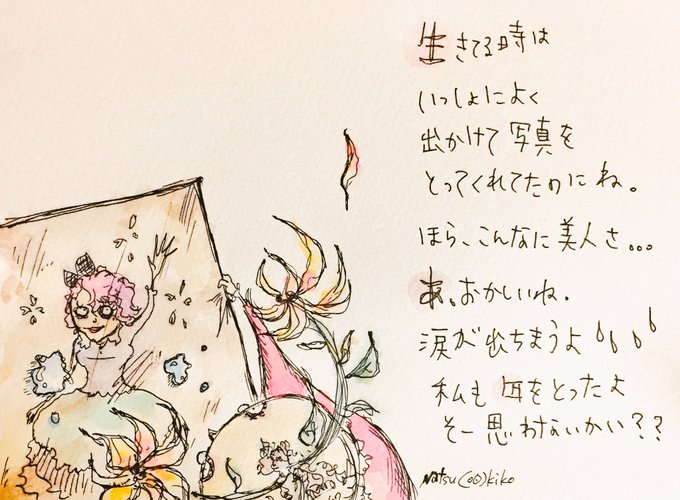 生きてる時は
いっしょによく
出かけて写真を
とってくれてたのにね。
ほら、こんなに美人さ...
あ、おかしいね.
涙が出ちまうよ
私も耳をとったよ
そー思わないかい??
Natsu(oo)kiko